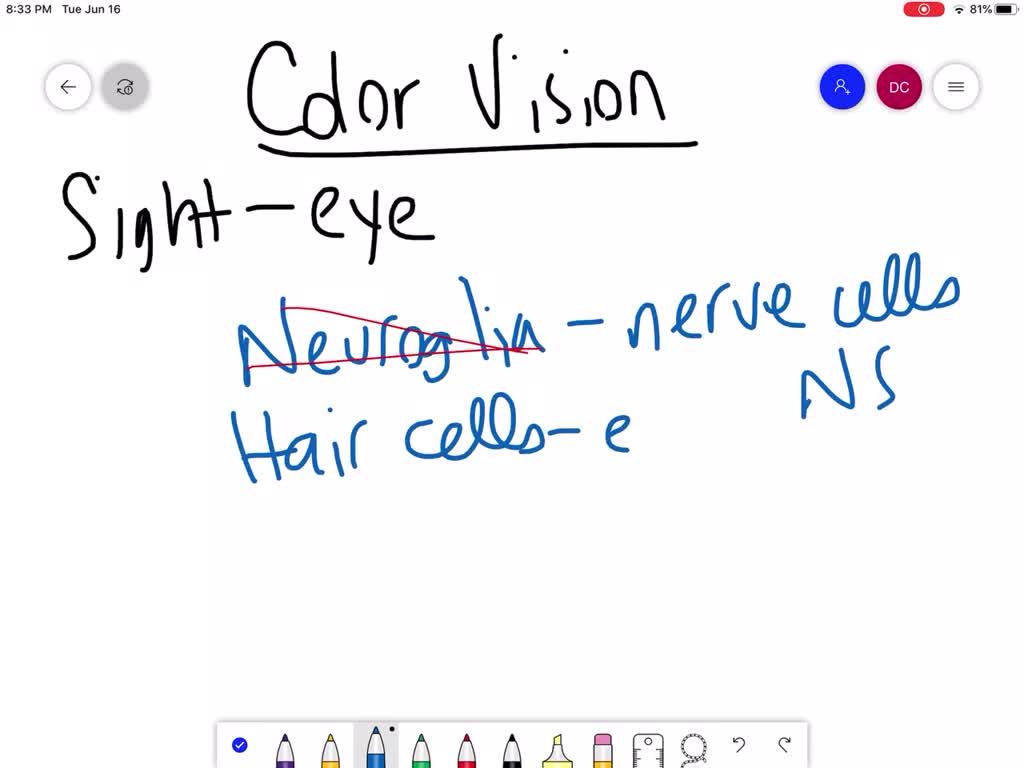 8:33 PM Tue Jun 16
81%
DC
Color Vision
Sight - eye
Neuroglia - nerve cells
NS
Hair cells - e